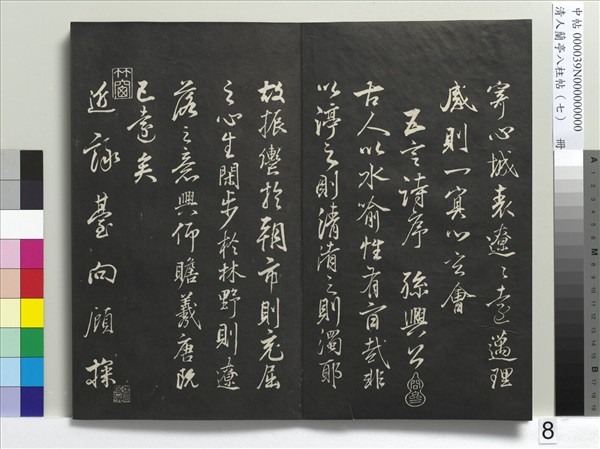 中帖 000039N000000000
清人蘭亭八柱帖（七） 冊
寄心城表遼〻遠邁理
感則一冥心玄會
五言詩序 孫興公
古人以水喻性有旨哉非
以渟之則清淆之則濁耶
故振轡於朝市則充屈
之心生閑步於林野則遼
落之意興仰瞻羲唐既
已遠矣
近詠臺向顧探
8